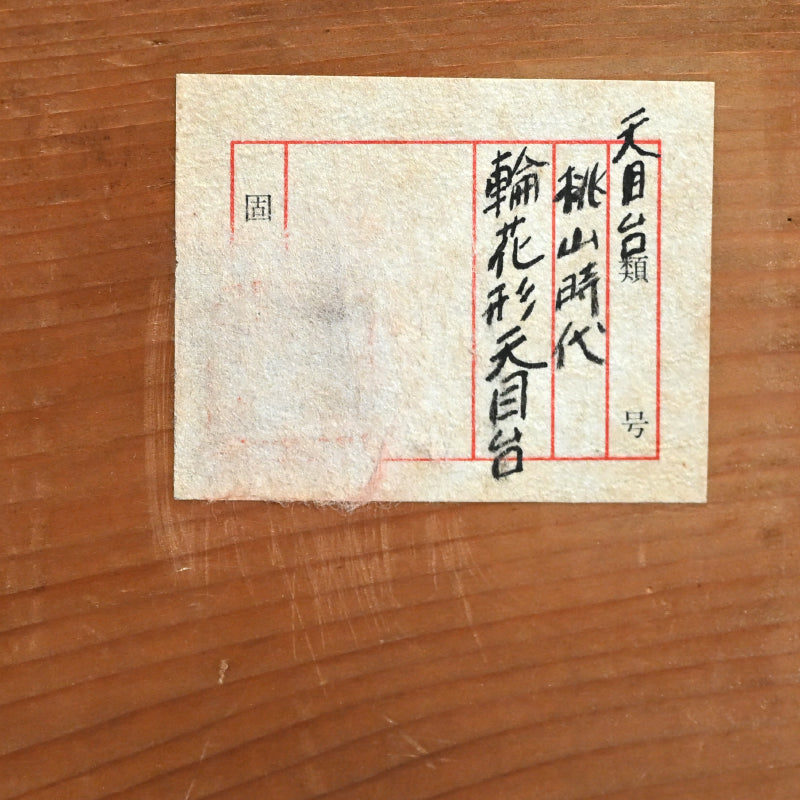 天目台類 号
桃山時代
輪花形天目台
固